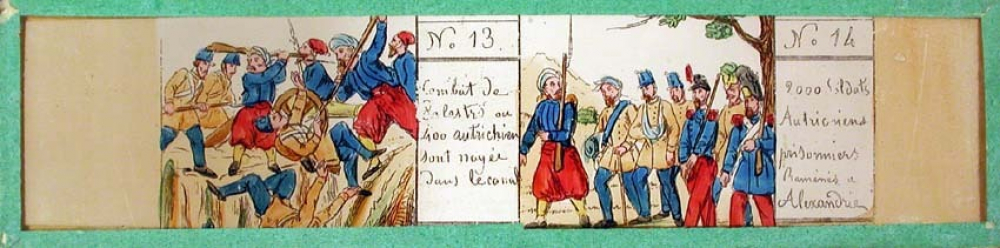 No 13.
Combat de
Palestro ou
400 autrichien
sont noyée
dans le canal
No 14
2000 Soldats
Autrichiens
prisonniers
Ramenés a
Alexandrie